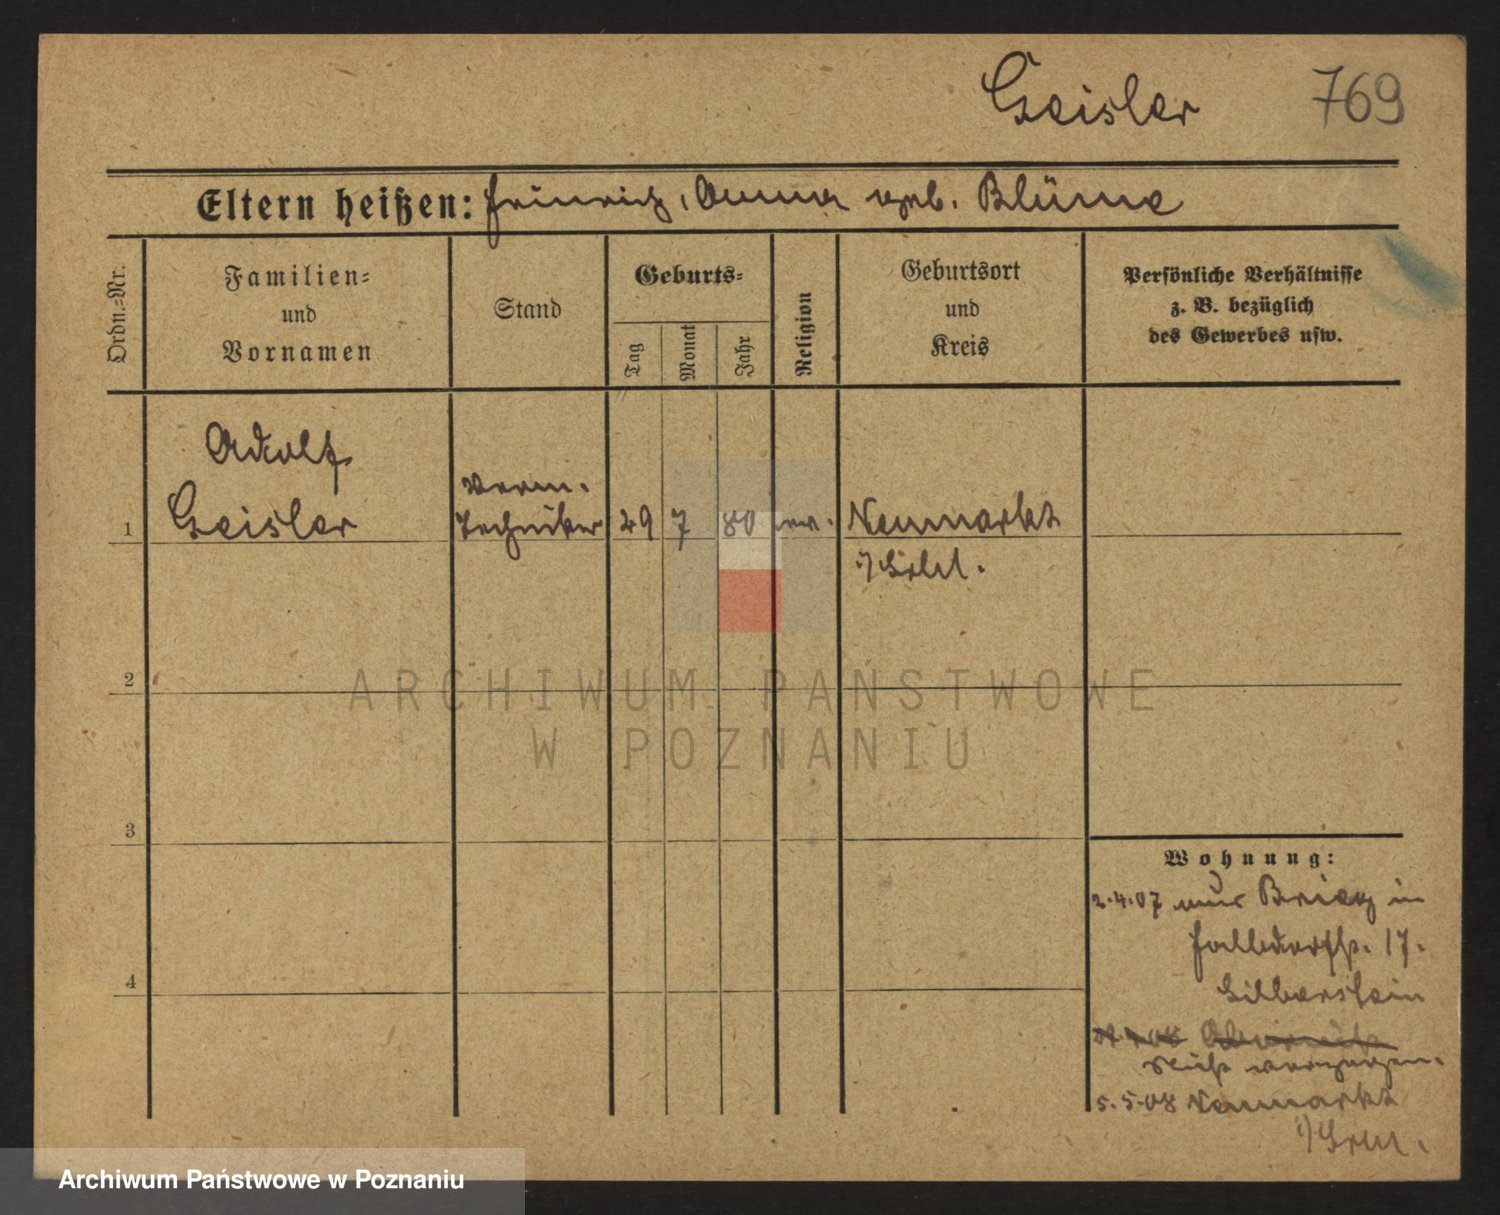 Geisler 769
Eltern heißen: Heinrich, Anna geb. Blüme
Ordn.=Nr.
Familien=
und
Vornamen
Stand
Geburts=
Tag
Monat
Jahr
Religion
Geburtsort
und
Kreis
Persönliche Verhältnisse
z. B. bezüglich
des Gewerbes usw.
Adolf
Geisler
1
Verm.
Techniker
29 7 80 ev.
Neumarkt
i/Schl.
2
3
4
Wohnung:
2.4.07 aus Brieg in
17.
Silberstein
Nicht verzogen.
5.5.08 Neumarkt
i/Schl.
ARCHIWUM PAŃSTWOWE
W POZNANIU
Archiwum Państwowe w Poznaniu